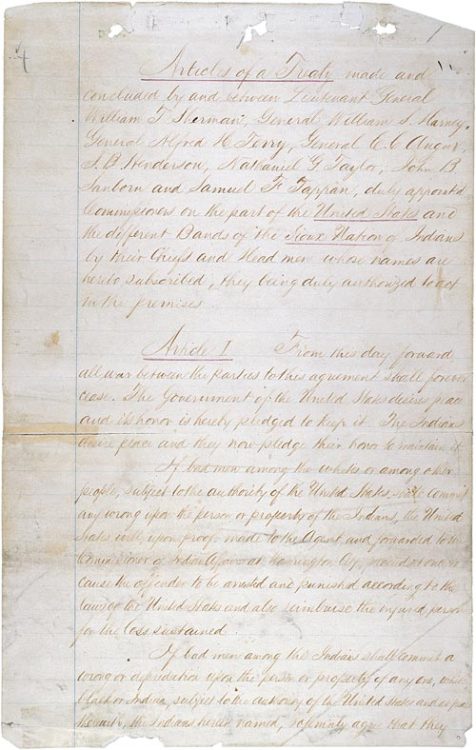 4
Articles of a Treaty made and
concluded by and between Lieutenant General
William T. Sherman, General William S. Harney,
General Alfred H. Terry, General C. C. Augur
J. B. Henderson, Nathaniel G. Taylor, John B
Sanborn and Samuel F. Tappan, duly appointed
Commissioners on the part of the United States and
the different Bands of the Sioux Nation of Indians
by their Chiefs and Head men whose names are
hereto subscribed, they being duly authorized to act
in the premises.
Article I From this day forward
all war between the parties to this agreement shall forever
cease. The Government of the United States desires peace
and its honor is hereby pledged to keep it. The Indians
desire peace and they now pledge their honor to maintain it.
If bad men among the whites or among other
people, subject to the authority of the United States, shall commit
any wrong upon the person or property of the Indians, the United
States will, upon proof made to the Agent and forwarded to the
Commissioner of Indian Affairs at Washington City, proceed at once to
cause the offender to be arrested and punished according to the
laws of the United States and also reimburse the injured person
for the loss sustained.
If bad men among the Indians shall commit a
wrong or depredation upon the person or property of any one, white
black or Indian, subject to the authority of the United States and at peace
therewith, the Indians herein named, solemnly agree that they